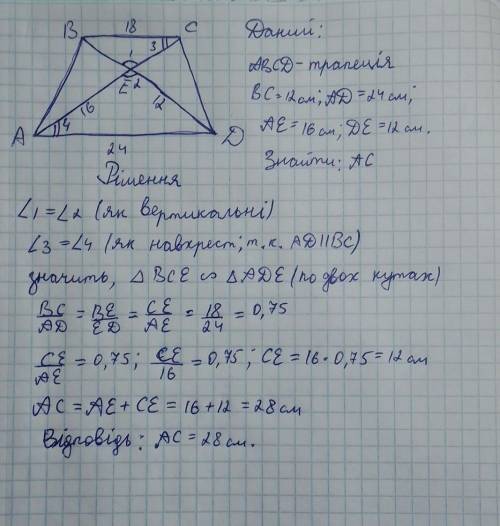 B 18 C
1 3
E 2
16 12
A 4 D
24
Даний:
ABCD - трапеція
BC = 12 см; AD = 24 см;
AE = 16 см; DE = 12 см.
Знайти: AC
Рішення
∠1 = ∠2 (як вертикальні)
∠3 = ∠4 (як навхрест; т.к. AD||BC)
значить, △BCE ∽ △ADE (по двох кутах)
BC/AD = BE/ED = CE/AE = 18/24 = 0,75
CE/AE = 0,75; CE/16 = 0,75; CE = 16 · 0,75 = 12 см
AC = AE + CE = 16 + 12 = 28 см
Відповідь: AC = 28 см.